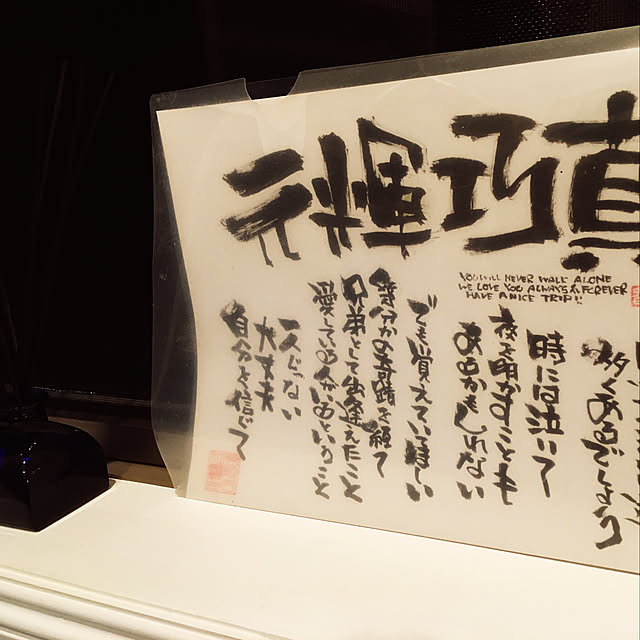 真巧輝元
YOU WILL NEVER WALK ALONE
WE LOVE YOU ALWAYS & FOREVER
HAVE A NICE TRIP!!
多くあるでしょう
時には泣いて
夜を明かすことも
あるかもしれない
でも覚えていてほしい
の奇跡を経て
兄弟として出逢えたこと
愛している人がいるということ
一人じゃない
大丈夫
自分を信じて